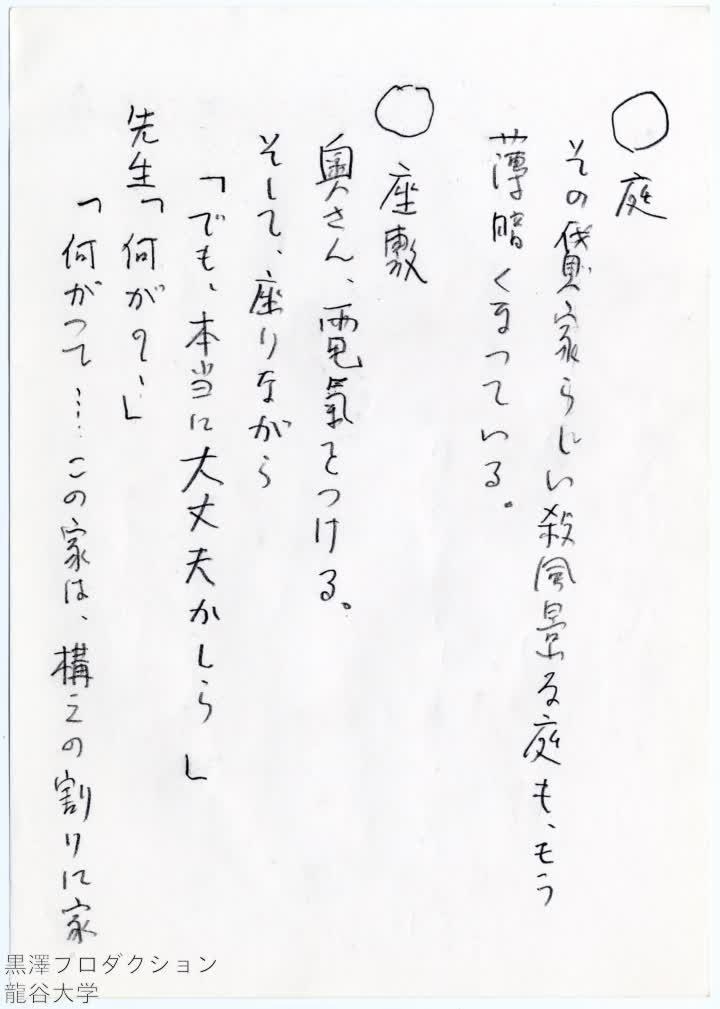 ○庭
その貸家らしい殺風景な庭も、もう
薄暗くなっている。
○座敷
奥さん、電氣をつける。
そして、座りながら
「でも、本当に大丈夫かしら」
先生「何がの、」
「何がって……この家は、構えの割りに家
黒澤プロダクション
龍谷大学